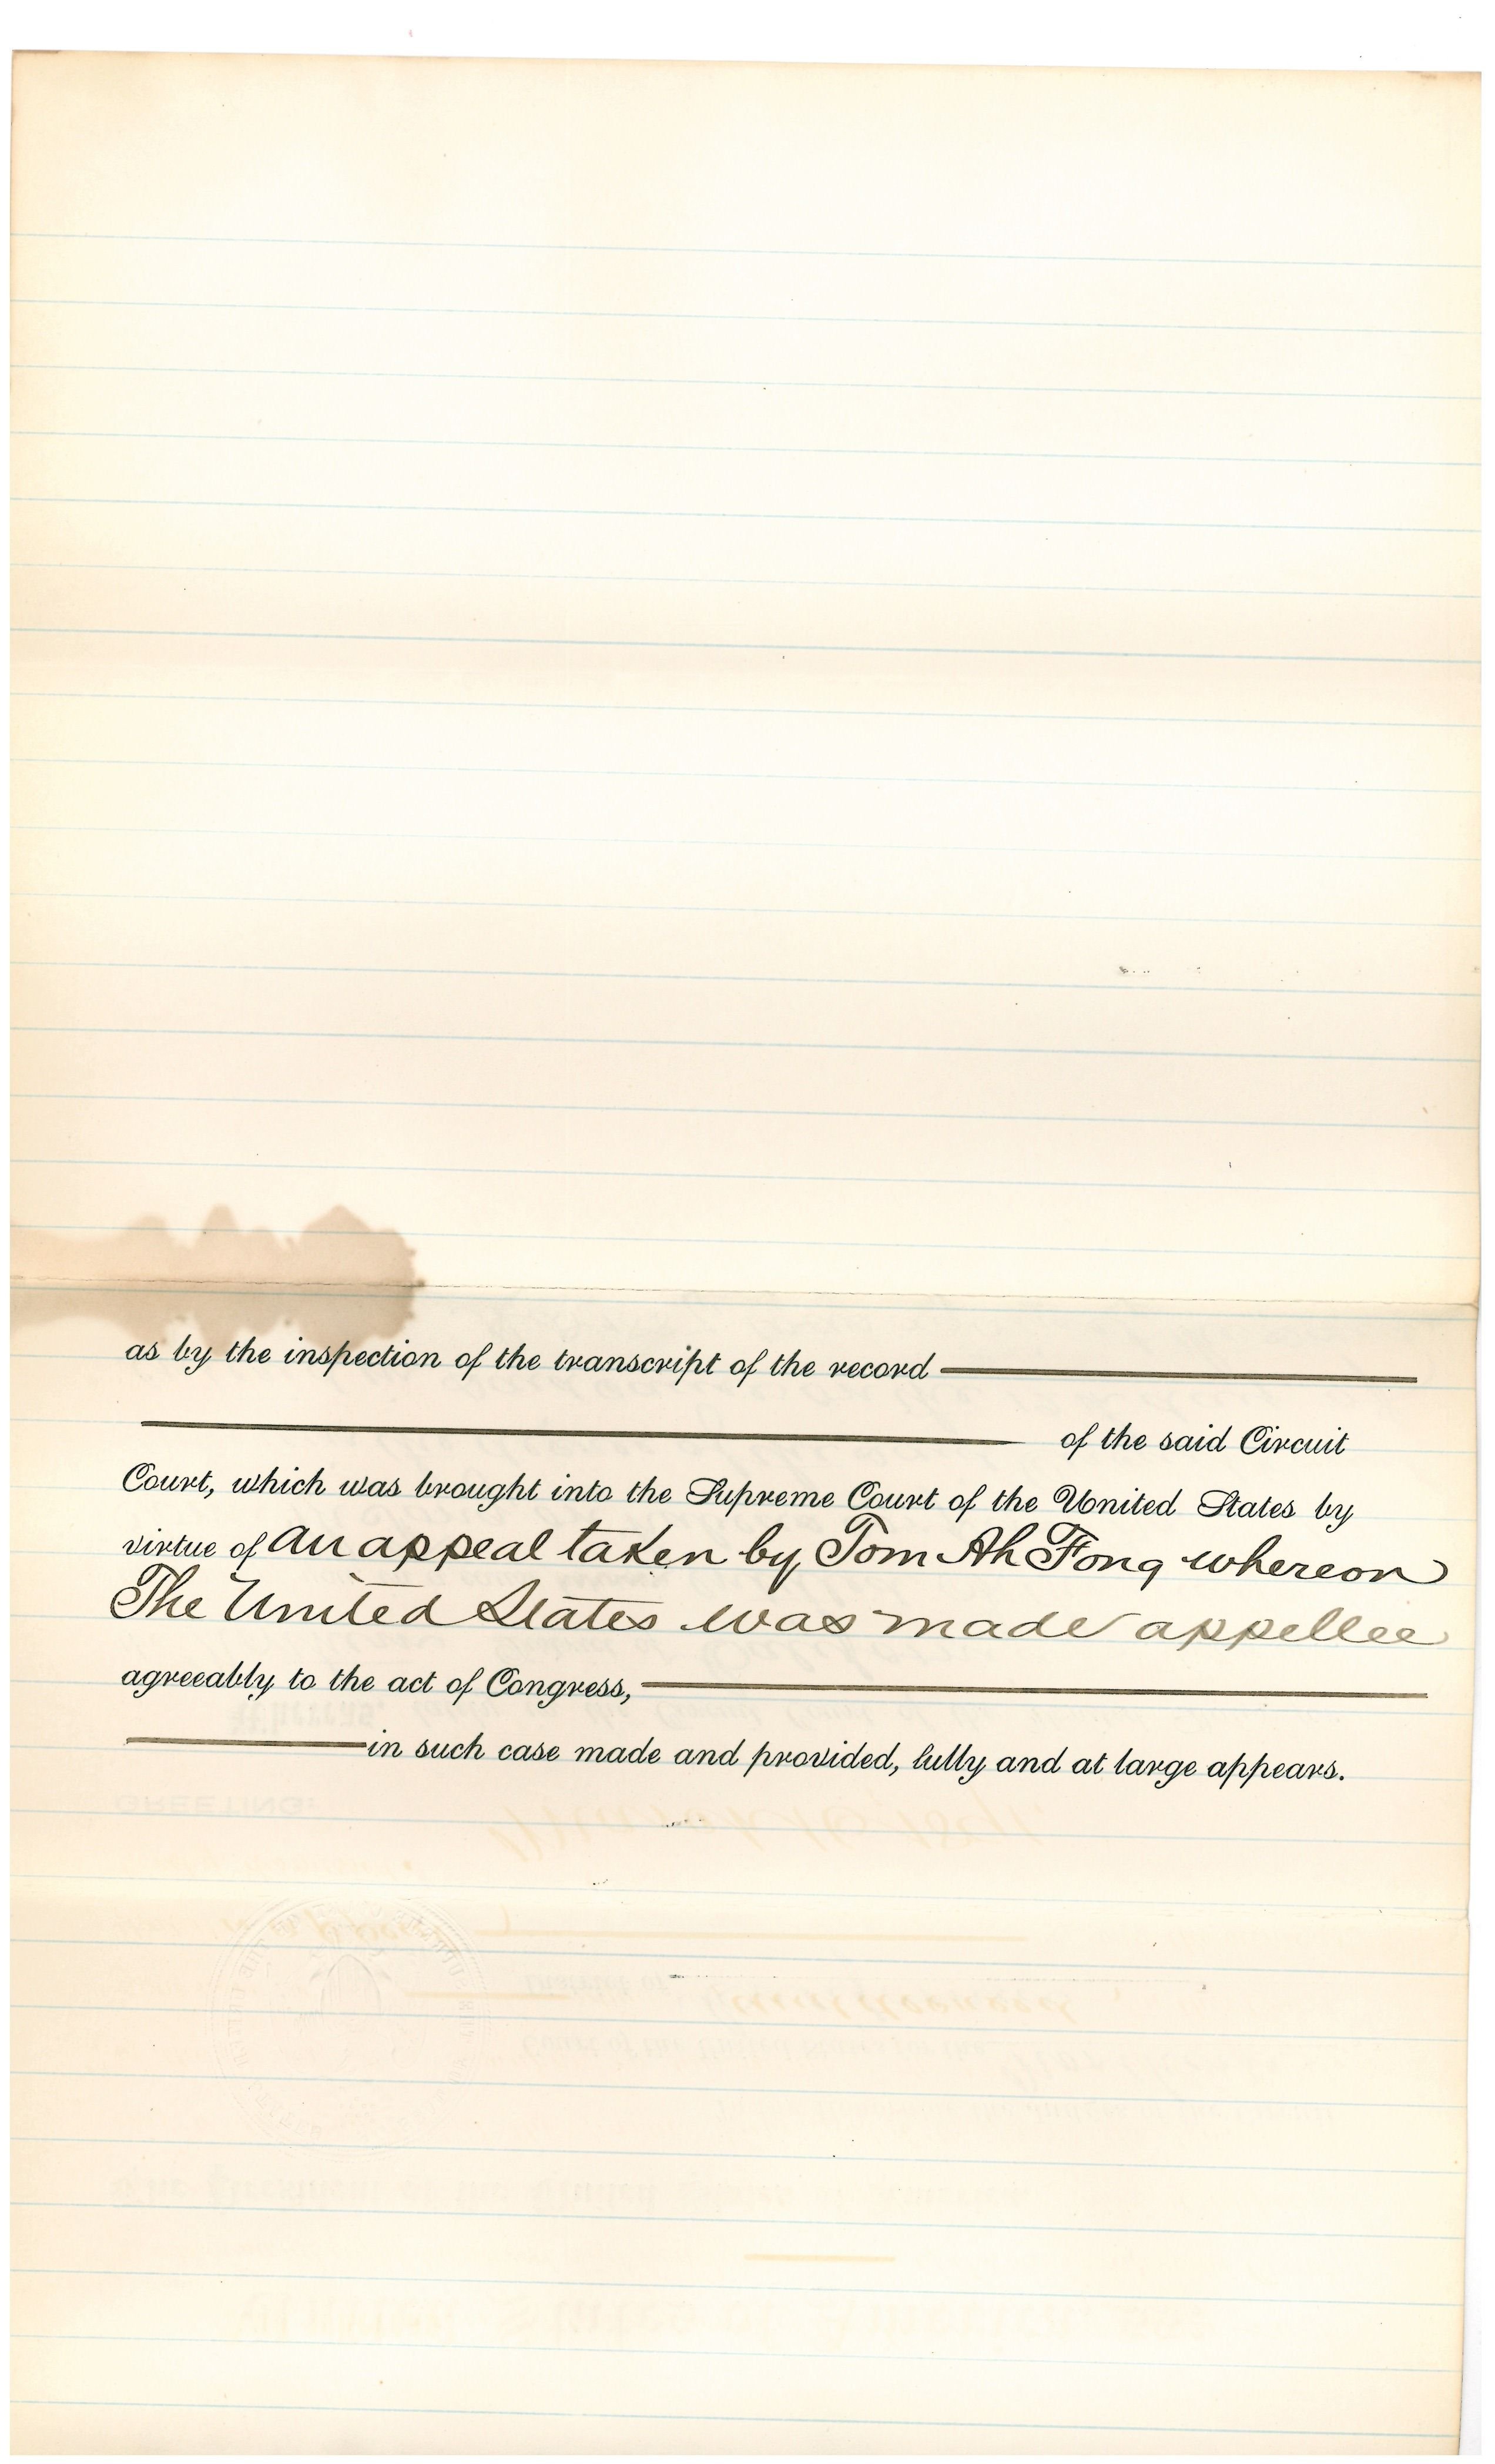 as by the inspection of the transcript of the record
of the said Circuit
Court, which was brought into the Supreme Court of the United States by
virtue of an appeal taken by Tom Ah Fong whereon
The United States was made appellee
agreeably to the act of Congress,
in such case made and provided, fully and at large appears.